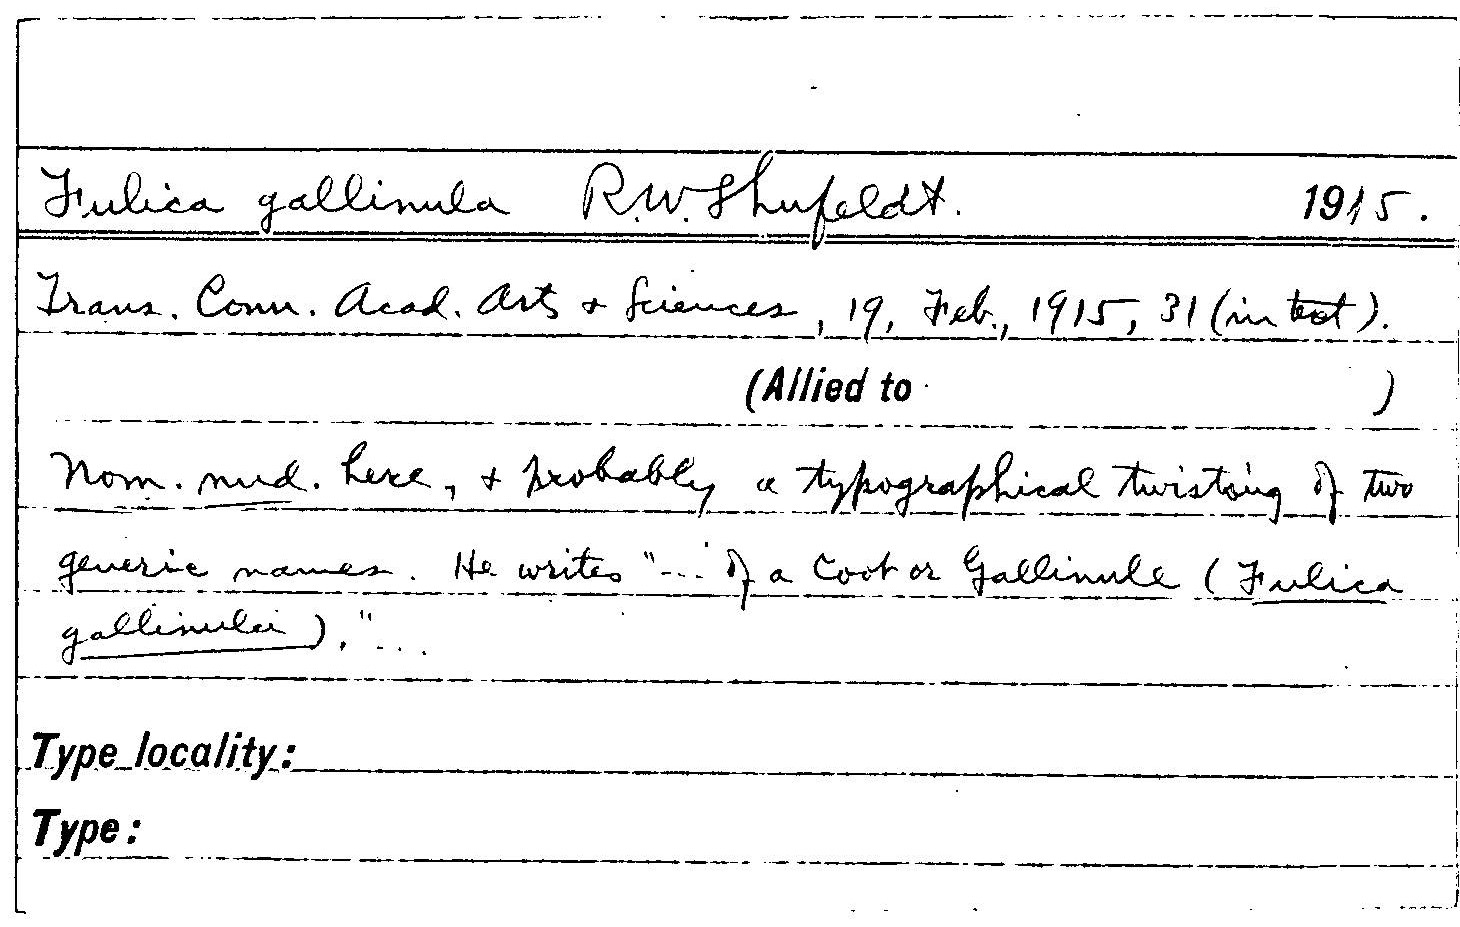 Fulica gallinula R.W. Shufeldt. 1915.
Trans. Conn. Acad. Arts & Sciences, 19, Feb., 1915, 31 (in text).
(Allied to )
Nom. nud. here, & probably a typographical twisting of two
generic names. He writes "... of a Coot or Gallinule (Fulica
gallinula)."...
Type locality:
Type: